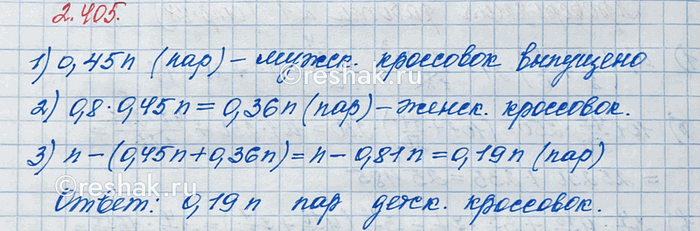 2.405.
1) 0,45n (пар) – мужск. кроссовок выпущено
2) 0,8·0,45n = 0,36n (пар) – женск. кроссовок.
3) n – (0,45n + 0,36n) = n – 0,81n = 0,19n (пар)
Ответ: 0,19n пар детск. кроссовок.